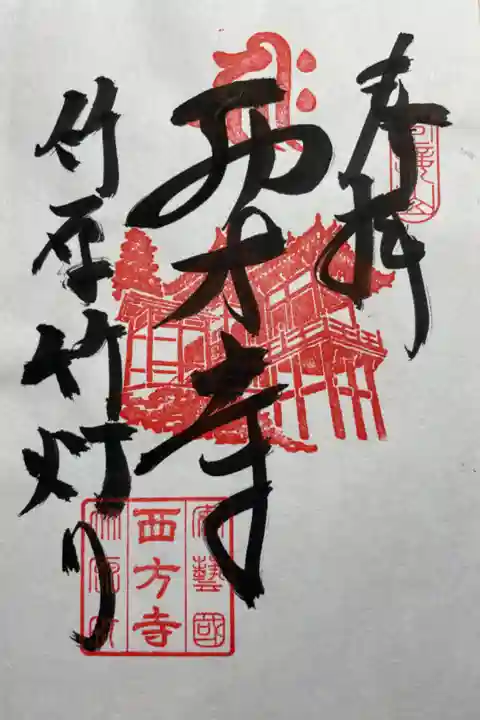 奉拝
西方寺
竹原竹灯り
安藝國
西方寺